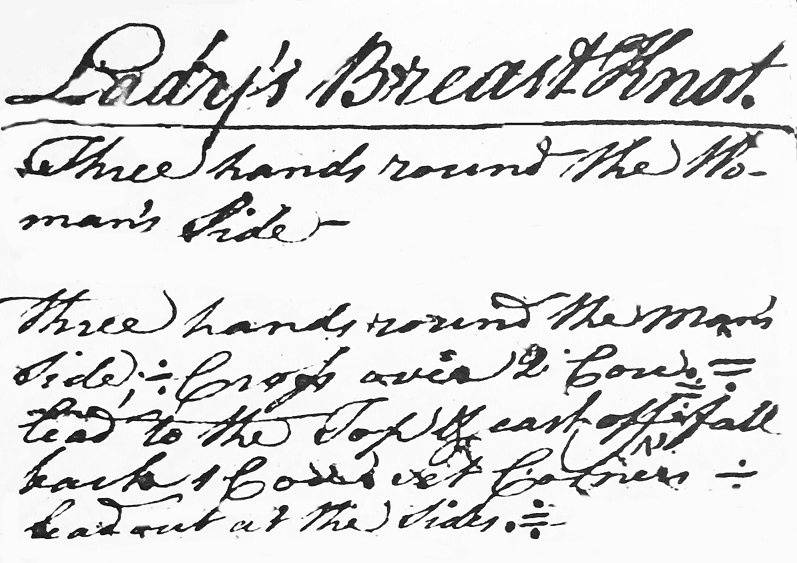 Lady's Breast Knot.
Three hands round the Wo-
man's Side -
three hands round the man's
side, ÷ Cross over 2 Cou.
lead to the Top & cast off fall
back 1 Cou set Corners ÷
lead out at the sides.